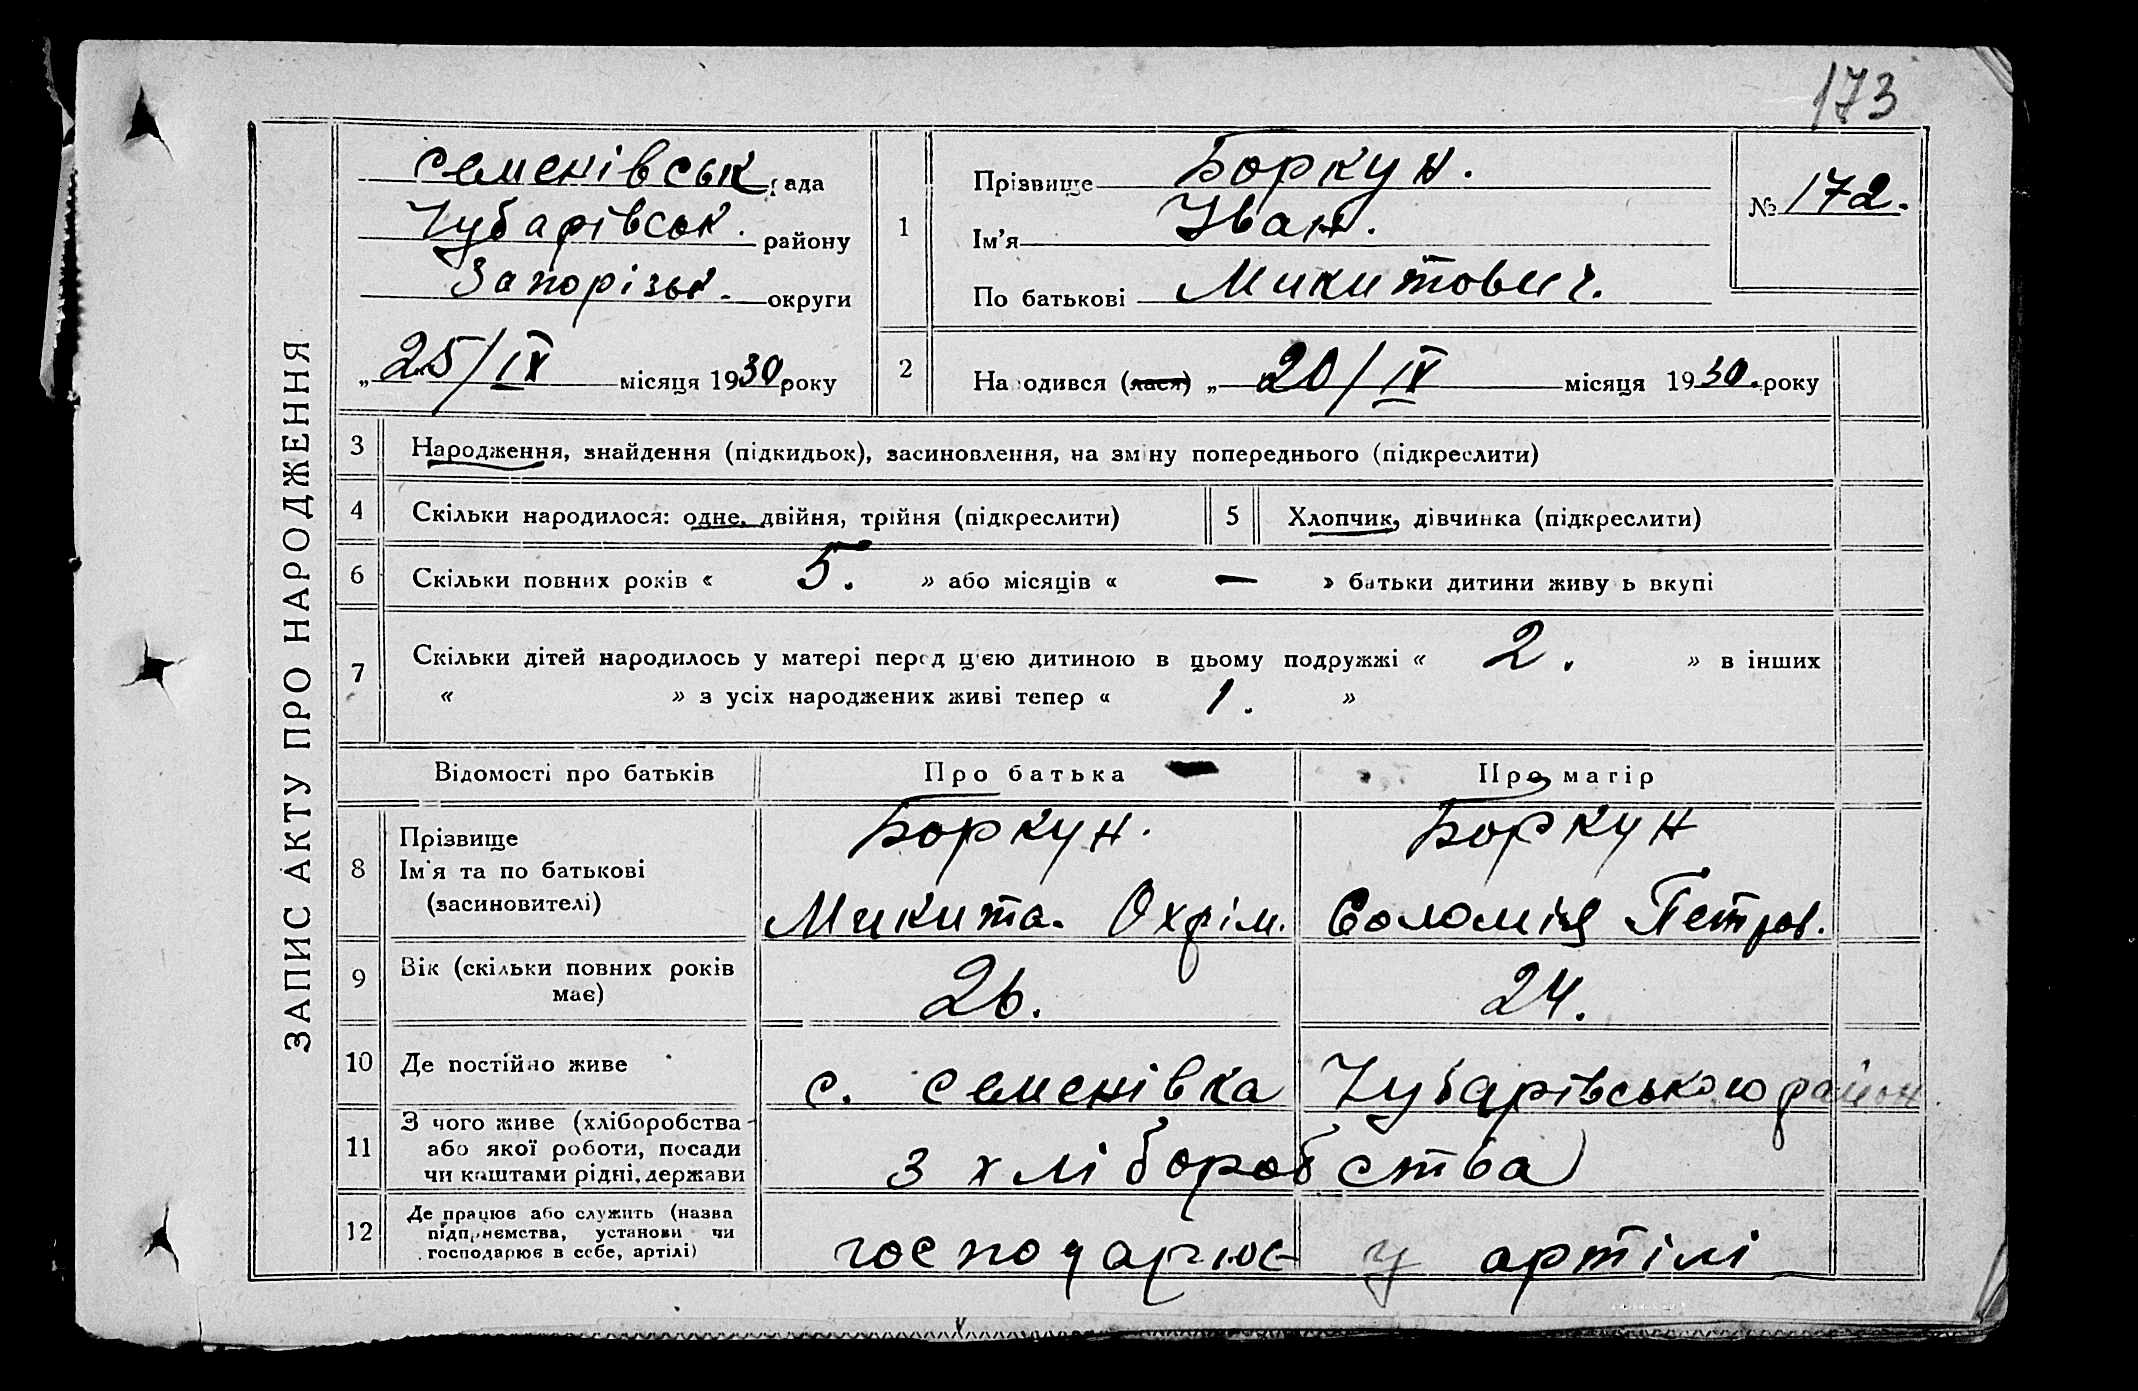 173
ЗАПИС АКТУ ПРО НАРОДЖЕННЯ
Семенівськ рада
Чубарівськ. району
Запорізьк. округи
„25/IX місяця 1930 року
1
Прізвище Боркун.
Ім’я Іван.
По батькові Микитович.
№ 172.
2
Народився (лася) „ 20/IX місяця 1930. року
3 Народження, знайдення (підкидьок), засиновлення, на зміну попереднього (підкреслити)
4 Скільки народилося: одне, двійня, трійня (підкреслити) 5 Хлопчик, дівчинка (підкреслити)
6 Скільки повних років « 5. » або місяців « — » батьки дитини живуть вкупі
7 Скільки дітей народилось у матері перед цією дитиною в цьому подружжі « 2. » в інших
« » з усіх народжених живі тепер « 1. »
Відомості про батьків Про батька Про матір
8 Прізвище Боркун. Боркун
Ім'я та по батькові
(засиновителі) Микита. Охрім. Соломія Петров.
9 Вік (скільки повних років
має) 26. 24.
10 Де постійно живе с. Семенівка Чубарівського район
11 З чого живе (хліборобства
або якої роботи, посади
чи коштами рідні, держави з хліборобства
12 Де працює або служить (назва
підприємства, установи чи
господарює в себе, артілі) господарює у артілі